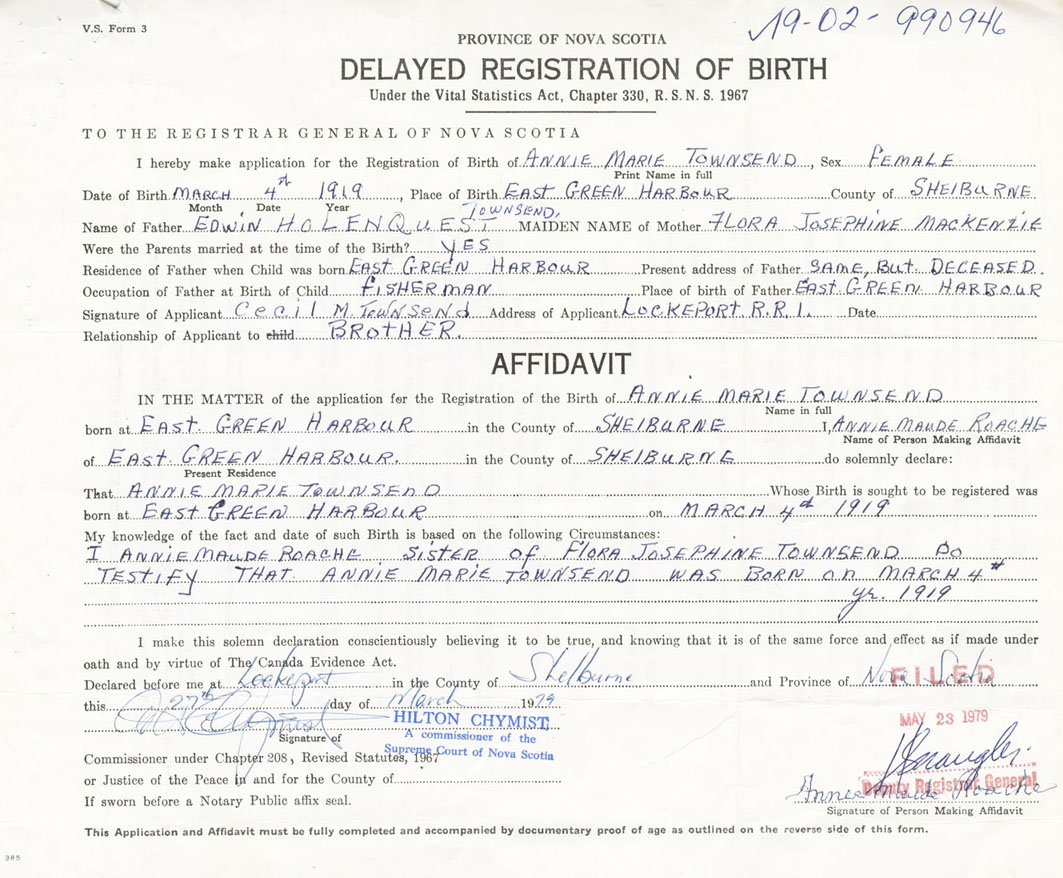 V.S. Form 3
19-02-990946
PROVINCE OF NOVA SCOTIA
DELAYED REGISTRATION OF BIRTH
Under the Vital Statistics Act, Chapter 330, R.S.N.S. 1967
TO THE REGISTRAR GENERAL OF NOVA SCOTIA
I hereby make application for the Registration of Birth of ANNIE MARIE TOWNSEND, Sex FEMALE
Print Name in full
Date of Birth MARCH 4th 1919, Place of Birth EAST GREEN HARBOUR County of SHELBURNE
Month Date Year
Name of Father EDWIN HOLENQUEST TOWNSEND, MAIDEN NAME of Mother FLORA JOSEPHINE MACKENZIE
Were the Parents married at the time of the Birth? YES
Residence of Father when Child was born EAST GREEN HARBOUR Present address of Father SAME, BUT DECEASED.
Occupation of Father at Birth of Child FISHERMAN Place of birth of Father EAST GREEN HARBOUR
Signature of Applicant Cecil M. TOWNSEnd Address of Applicant LOCKEPORT, R.R.1. Date
Relationship of Applicant to child BROTHER.
AFFIDAVIT
IN THE MATTER of the application for the Registration of the Birth of ANNIE MARIE TOWNSEND
Name in full
born at EAST GREEN HARBOUR in the County of SHELBURNE I, ANNIE MAUDE ROACHE
Name of Person Making Affidavit
of EAST GREEN HARBOUR. in the County of SHELBURNE do solemnly declare:
Present Residence
That ANNIE MARIE TOWNSEND Whose Birth is sought to be registered was
born at EAST GREEN HARBOUR on MARCH 4th 1919
My knowledge of the fact and date of such Birth is based on the following Circumstances:
I ANNIE MAUDE ROACHE SISTER of FLORA JOSEPHINE TOWNSEND DO
TESTIFY THAT ANNIE MARIE TOWNSEND WAS BORN on MARCH 4th
yr. 1919
I make this solemn declaration conscientiously believing it to be true, and knowing that it is of the same force and effect as if made under
oath and by virtue of The Canada Evidence Act.
Declared before me at Lockeport in the County of Shelburne and Province of Nova Scotia
FILED
this 27th day of March 1979
MAY 23 1979
HILTON CHYMIST,
A commissioner of the
Supreme Court of Nova Scotia
Signature of
Commissioner under Chapter 208, Revised Statutes, 1967
or Justice of the Peace in and for the County of
Deputy Registrar General
Annie Maude Roache
Signature of Person Making Affidavit
If sworn before a Notary Public affix seal.
This Application and Affidavit must be fully completed and accompanied by documentary proof of age as outlined on the reverse side of this form.
385